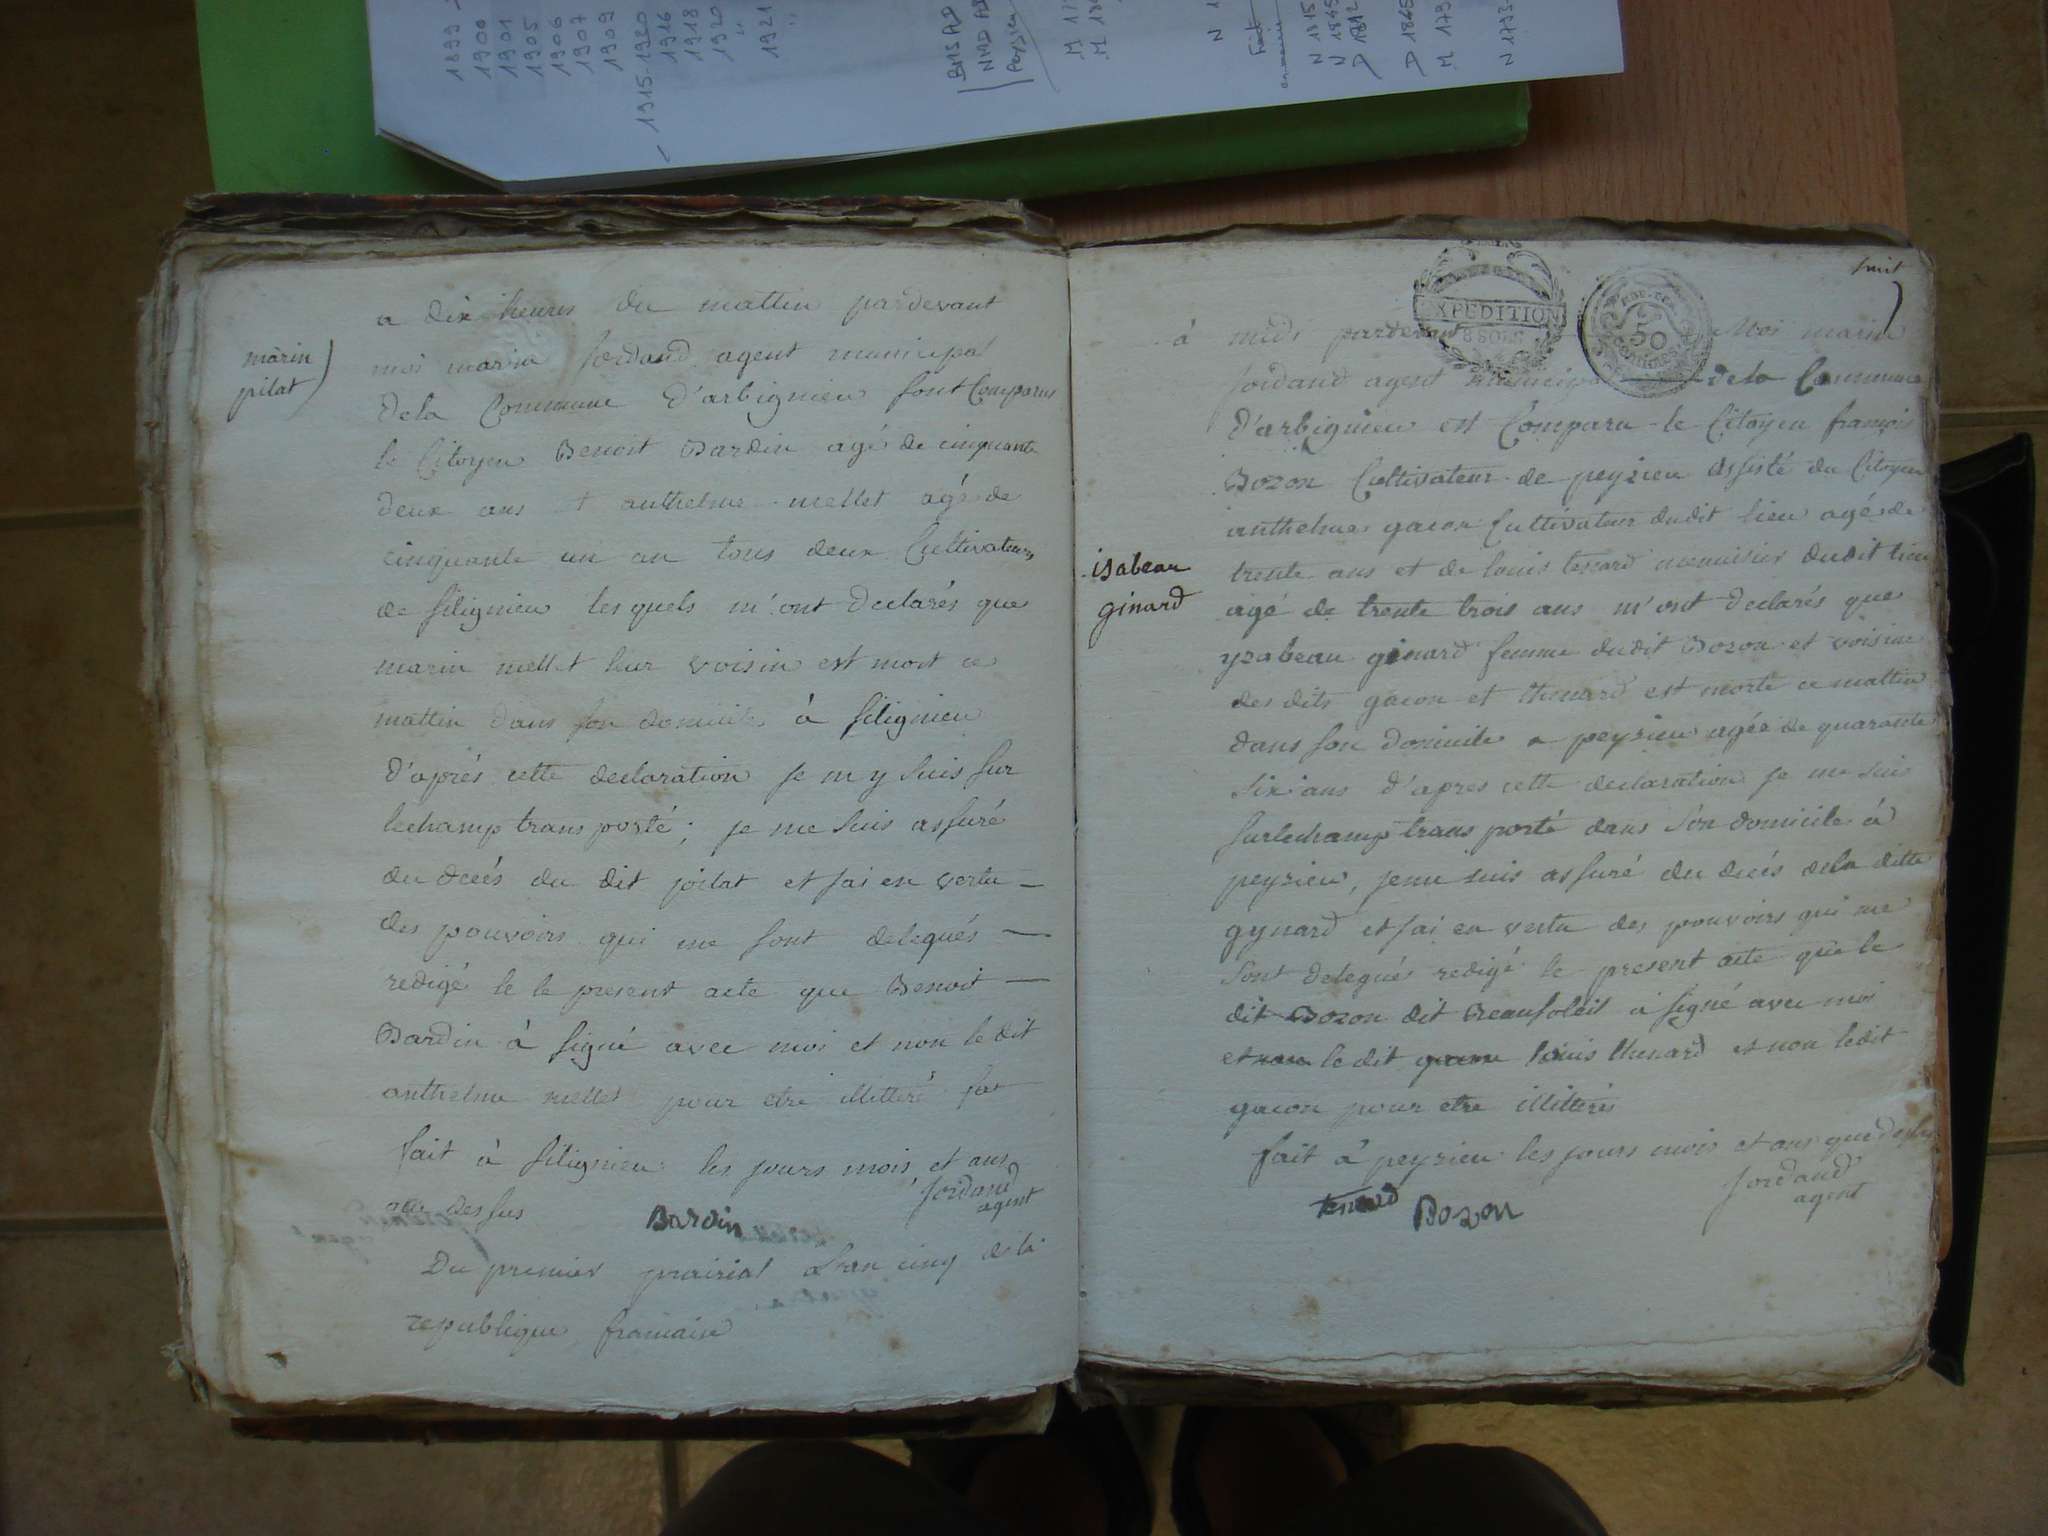 1899
1900
1901
1905
1906
1907
1909
1915-1920
1916
1918
1920
1921
BMS AD
NMD AD
Peyzieu
Fait
N 1815
N 1845
D 1812
D 1865
M 179
N 1793
marin
pilat
a dix heures du mattin pardevant
moi marin Jordand agent municipal
de la Commune D'arbignieu sont Comparus
le Citoyen Benoit Bardin agé de cinquante
deux ans + anthelme mellet agé de
cinquante un an tous deux Cultivateurs
de silignieu les quels m'ont declarés que
marin mellet leur voisin est mort ce
mattin dans son domicile à silignieu
D'aprés cette declaration je m y suis sur
lechamp trans porté; je me suis assuré
du decés du dit pilat et jai en vertu
des pouvoirs qui me sont delegués
redigé le le present acte que Benoit
Bardin à signé avec moi et non le dit
anthelme mellet pour etre illitteré
fait à silignieu les jours mois et ans
que dessus
Bardin
Jordand
agent
Du premier prairial a l'an cinq de la
republique francaise
huit
EXPEDITION
8 SOLS
50
CENTIMES
à midi pardevant Moi marin
Jordand agent municipal de la Commune
D'arbignieu est Comparu le Citoyen françois
Bozon Cultivateur de peyzieu assisté du Citoyen
anthelme gacon Cultivateur dudit lieu agé de
isabeau
ginard
trente ans et de louis tenard menuisier dudit lieu
agé de trente trois ans m'ont declarés que
yzabeau ginard femme dudit Bozon et voisine
des dits gacon et thenard est morte ce mattin
dans son domicile a peyzieu agée de quarante
six ans d'apres cette declaration je me suis
surlechamp trans porté dans son domicile à
peyzieu, je me suis assuré du decés dela ditte
gynard et jai en vertu des pouvoirs qui me
sont delegués redigé le present acte que le
dit Bozon dit Beausoleil a signé avec moi
et non le dit gacon louis thenard et non ledit
gacon pour etre illitterés
fait a peyzieu les jours mois et ans que dessus
tenard Bozon
Jordand
agent